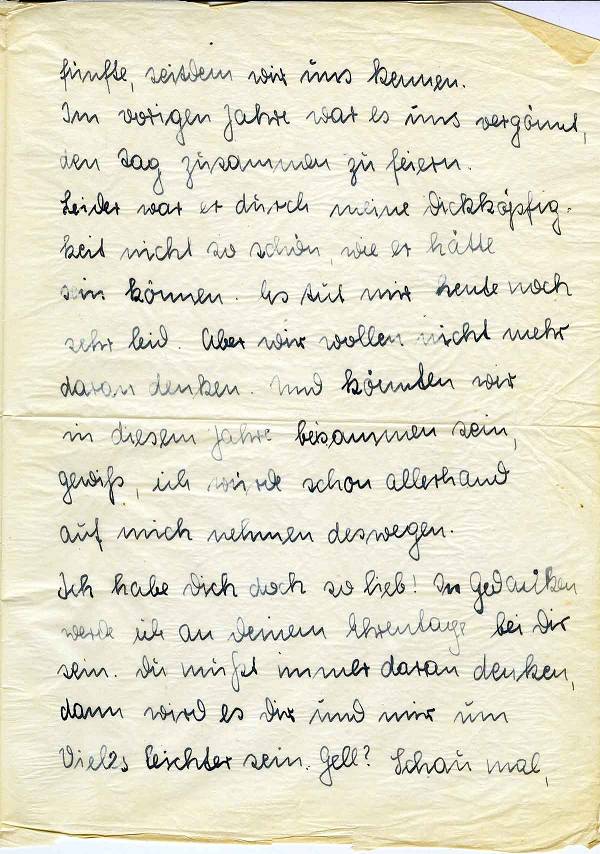 fünfte, seitdem wir uns kennen.
Im vorigen Jahre war es uns vergönnt,
den Tag zusammen zu feiern.
Leider war er durch meine Dickköpfig-
keit nicht so schön, wie er hätte
sein können. Es tut mir heute noch
sehr leid. Aber wir wollen nicht mehr
daran denken. Und könnten wir
in diesem Jahre beisammen sein,
gewiß, ich würde schon allerhand
auf mich nehmen deswegen.
Ich habe Dich doch so lieb! In Gedanken
werde ich an Deinem Ehrentage bei Dir
sein. Du mußt immer daran denken,
dann wird es Dir und mir um
Vieles leichter sein. Gell? Schau mal,